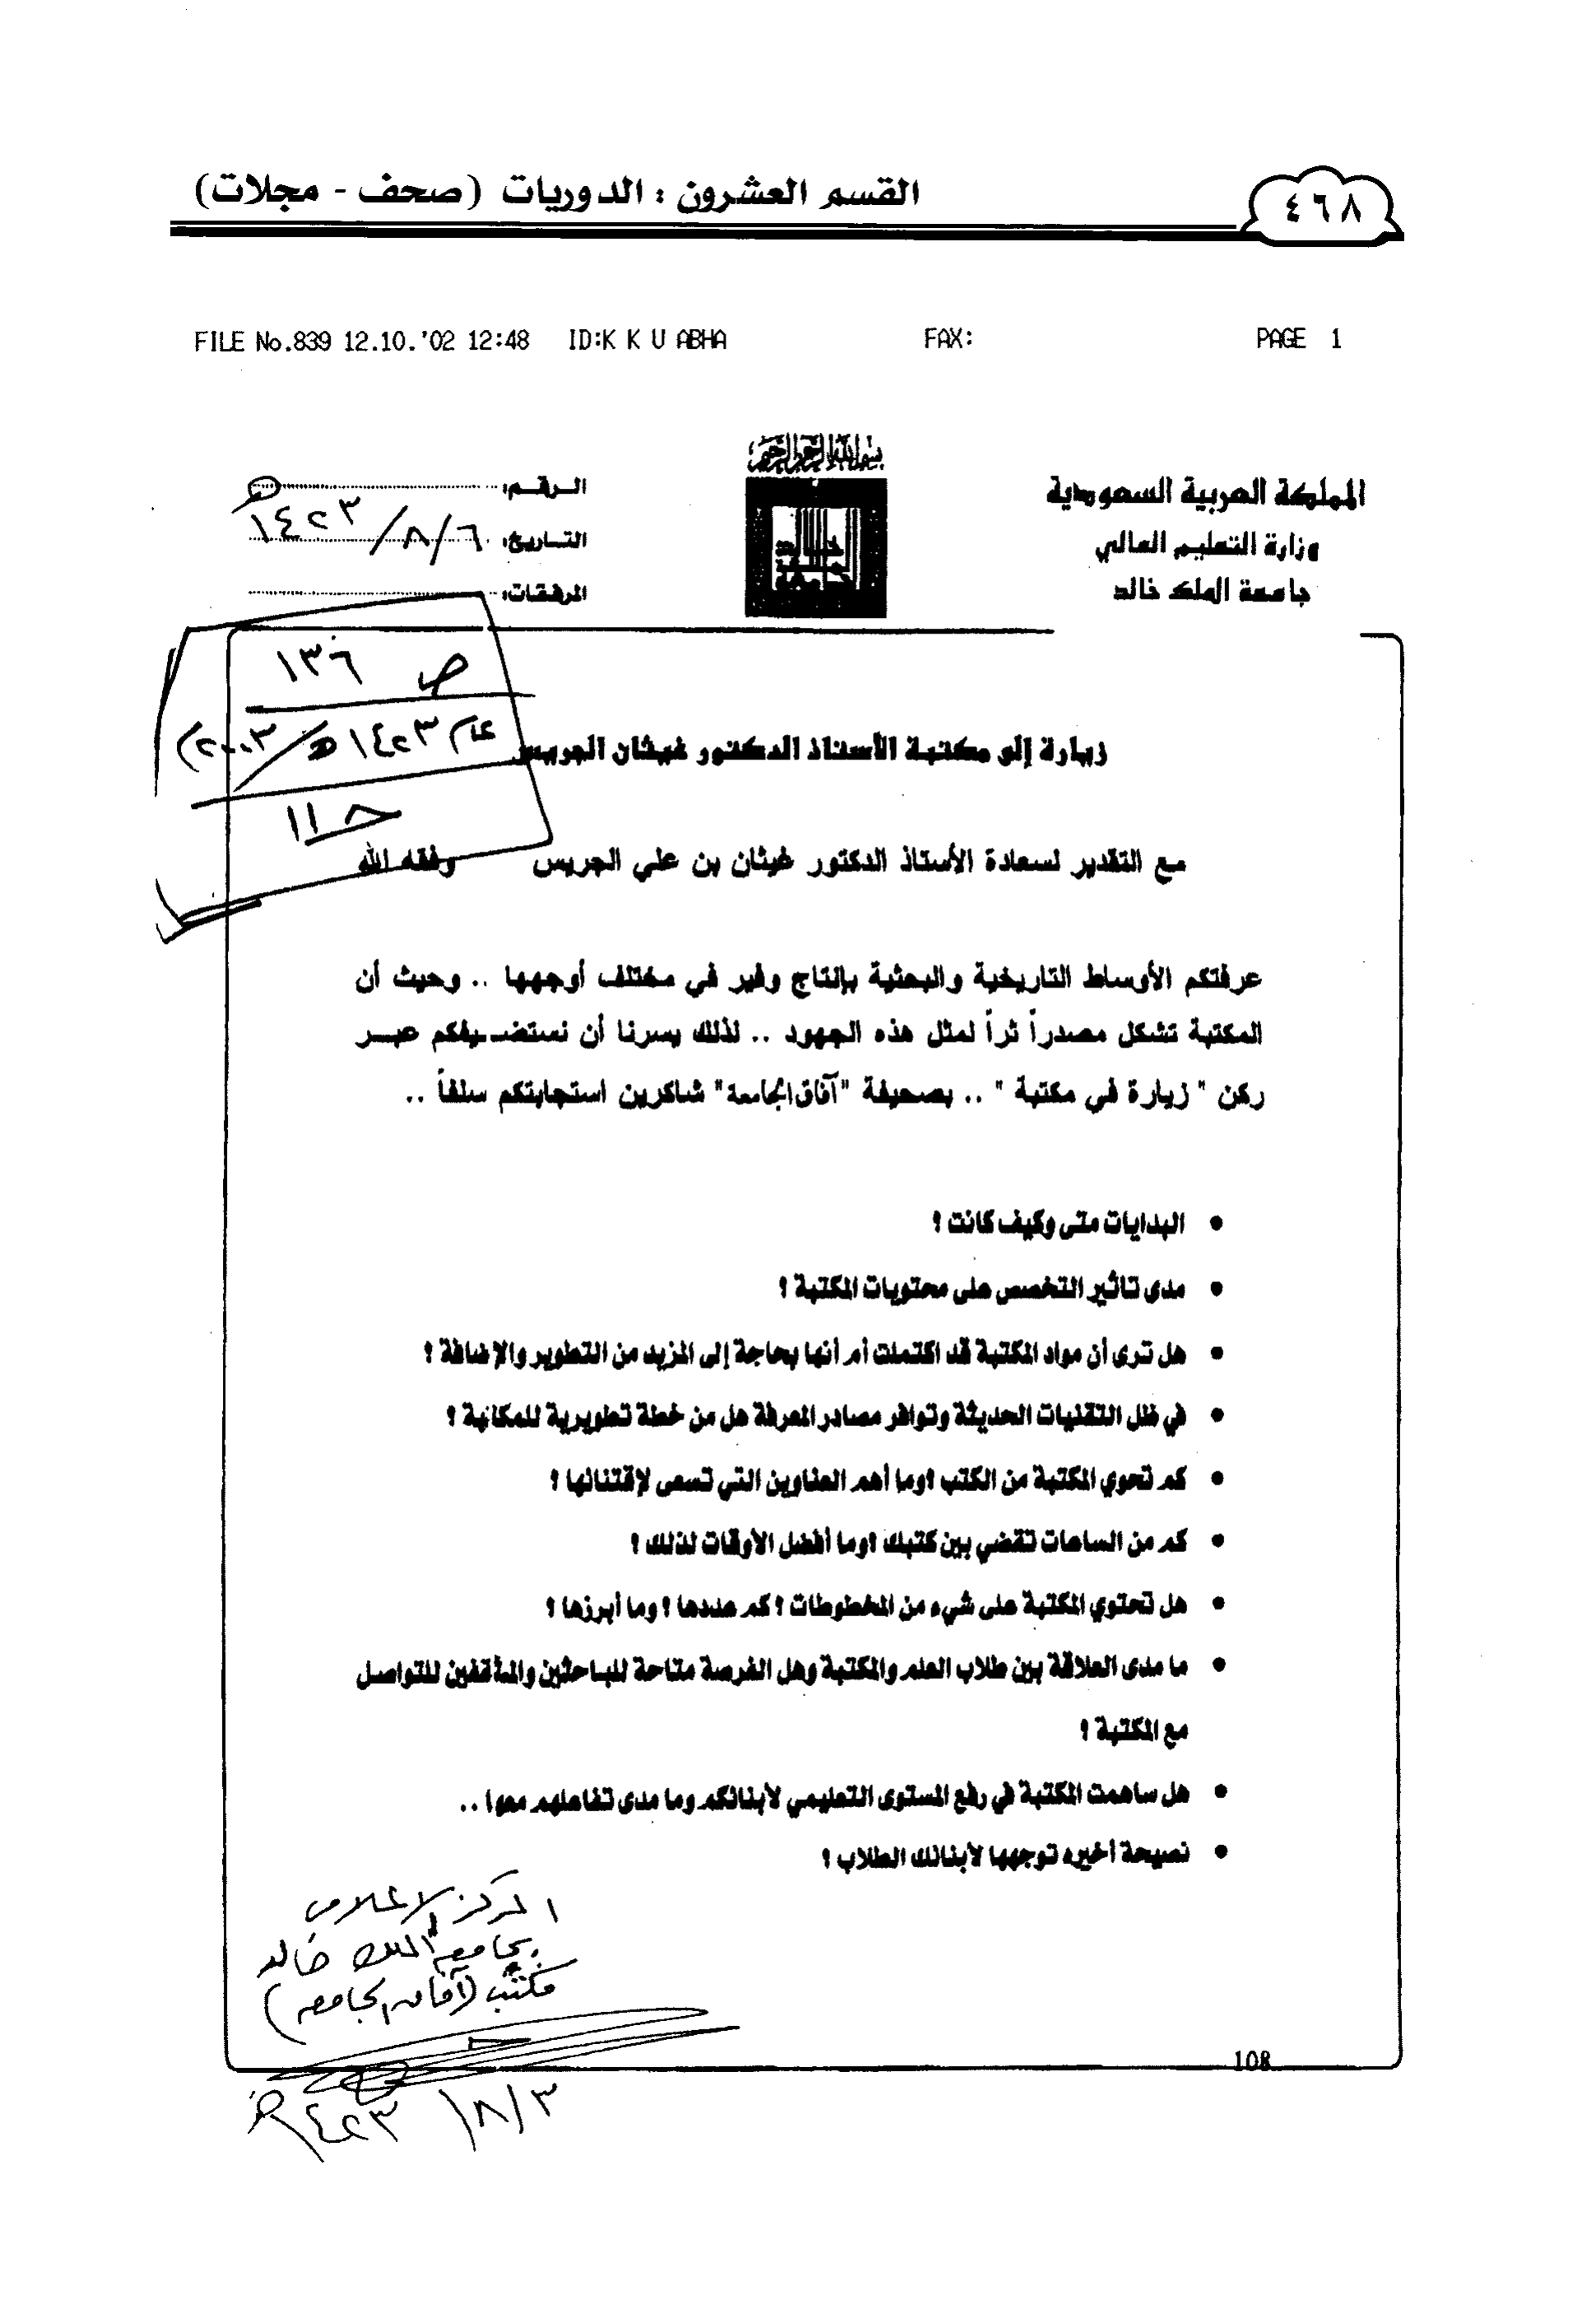 القسم العشرون : الدوريات (صحف - مجلات)
٤٦٨
FILE No.839 12.10.'02 12:48 ID:K K U ABHA FAX: PAGE 1
بسم الله الرحمن الرحيم
المملكة العربية السعودية
وزارة التعليم العالي
جامعة الملك خالد
الرقم:
التاريخ: ٦/٨/١٤٢٣هـ
المرفقات:
ص ١٣٦
عام ١٤٢٣هـ/٢٠٠٣م
زيارة إلى مكتبة الأستاذ الدكتور غيثان الجريس
مع التقدير لسعادة الأستاذ الدكتور غيثان بن علي الجريس وفقه الله
عرفتكم الأوساط التاريخية والبحثية بإنتاج وفير في مختلف أوجهها .. وحيث أن
المكتبة تشكل مصدراً ثراً لمثل هذه الجهود .. لذلك يسرنا أن نستضيفكم عبر
ركن " زيارة في مكتبة " .. بصحيفة "آفاق الجامعة" شاكرين استجابتكم سلفاً ..
• البدايات متى وكيف كانت ؟
• مدى تاثير التخصص على محتويات المكتبة ؟
• هل ترى أن مواد المكتبة قد اكتملت أم أنها بحاجة إلى المزيد من التطوير والإضافة ؟
• في ظل التقنيات الحديثة وتوافر مصادر المعرفة هل من خطة تطويرية للمكانية ؟
• كم تحوي المكتبة من الكتب ؟وما أهم العناوين التي تسعى لإقتنائها ؟
• كم من الساعات تقضي بين كتبك ؟وما أفضل الأوقات لذلك ؟
• هل تحتوي المكتبة على شيء من المخطوطات ؟ كم عددها ؟ وما أبرزها ؟
• ما مدى العلاقة بين طلاب العلم والمكتبة وهل الفرصة متاحة للباحثين والمثقفين للتواصل
مع المكتبة ؟
• هل ساهمت المكتبة في رفع المستوى التعليمي لأبنائكم وما مدى تفاعلهم معها ..
• نصيحة أخيره توجهها لأبنائك الطلاب ؟
المركز الإعلامي
بجامعة الملك خالد
مكتب (آفاق الجامعة)
108
٣/٨/١٤٢٣هـ